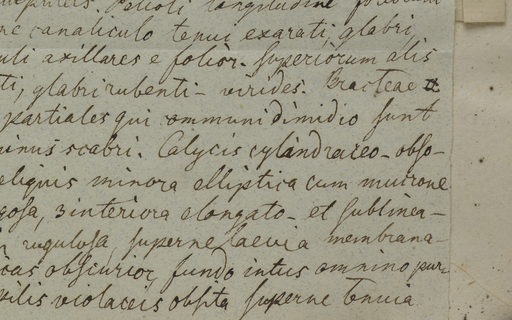 Petioli longitudine foliorum
ne canaliculo tenui exarati, glabri,
uli axillares e folior. superiorum alis
ti, glabri rubenti-virides. Bracteae
partiales qui communi dimidio sunt
inus scabri. Calycis cylindraceo-obso-
eliquis minora elliptica cum mucrone
gosa, 3 interiora elongato- et sublinea-
rugulosa, superne laevia membrana-
cas obscurior, fundo intus omnino pur-
xilis violaceis obsita superne tenuia